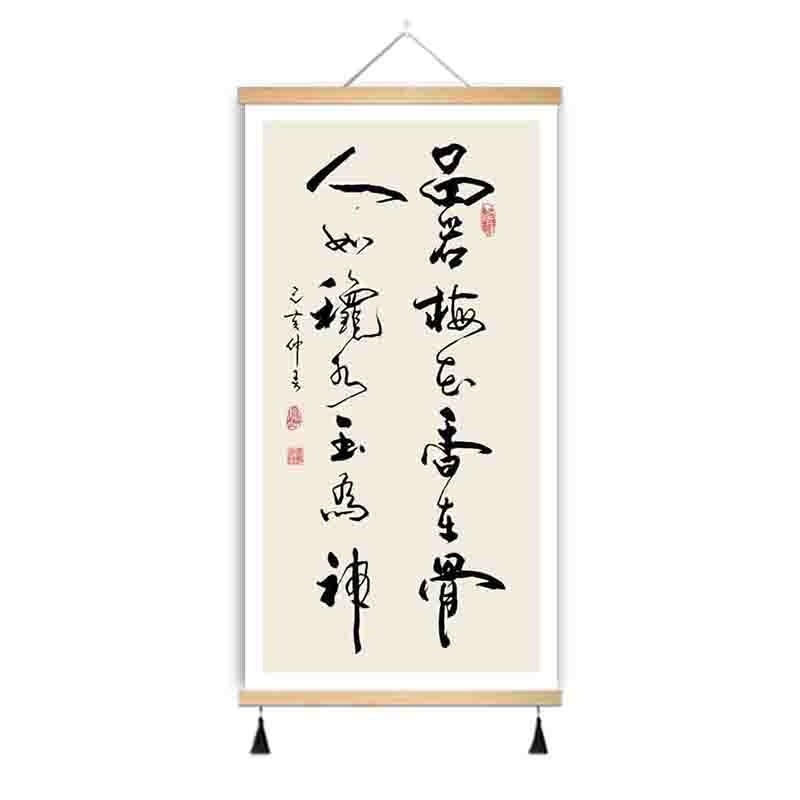 品若梅花香在骨
人如秋水玉为神
己亥仲春